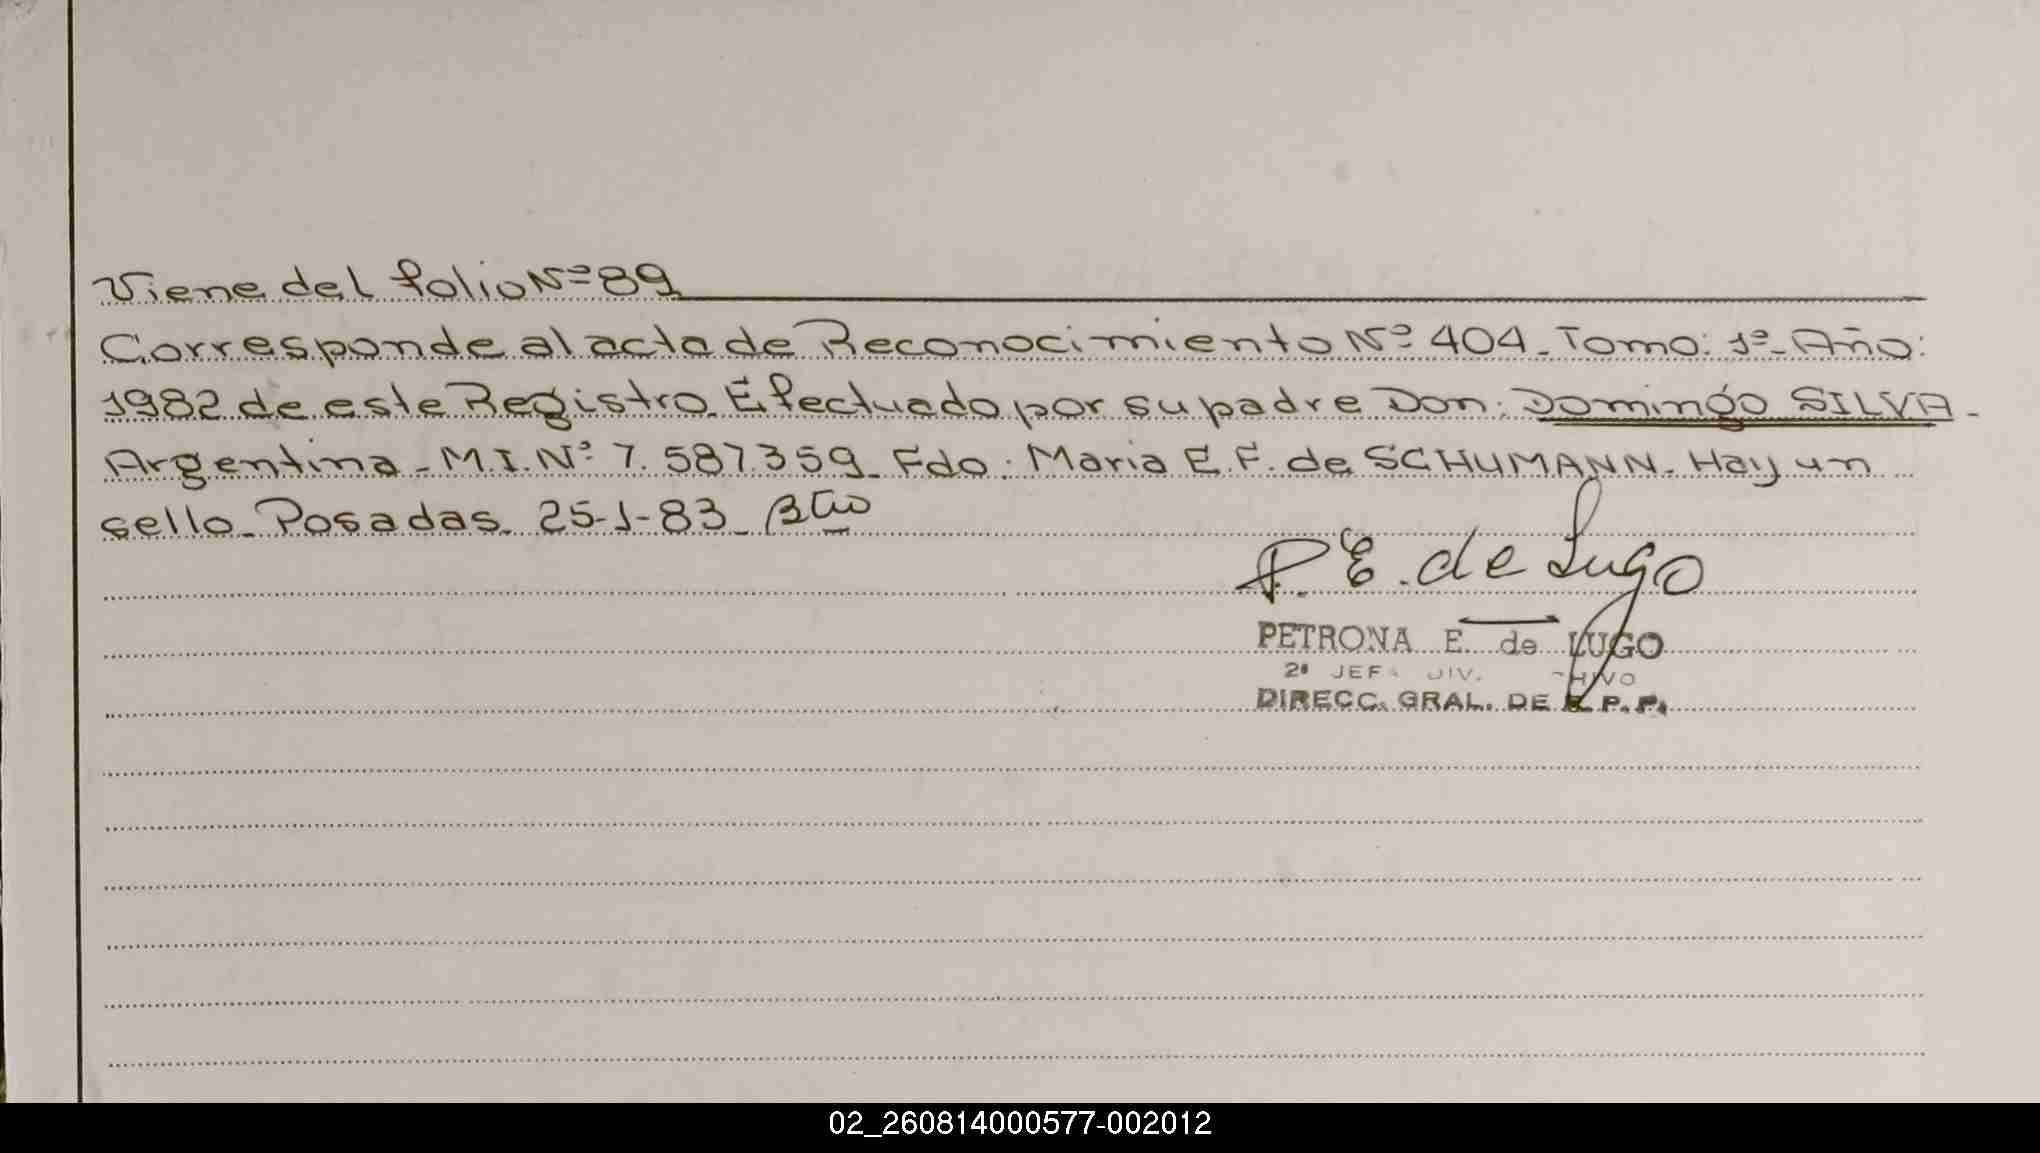 Viene del folio Nº 89
Corresponde al acta de Reconocimiento Nº 404. Tomo: 1º. Año:
1982 de este Registro. Efectuado por su padre Don: Domingo SILVA.
Argentina. M.I. Nº 7.587.359. Fdo: Maria E. F. de SCHUMANN. Hay un
sello. Posadas. 25-1-83.
P. E. de Lugo
PETRONA E. de LUGO
2ª JEFA DIV.
DIRECC. GRAL. DE R.P.P.
02_260814000577-002012